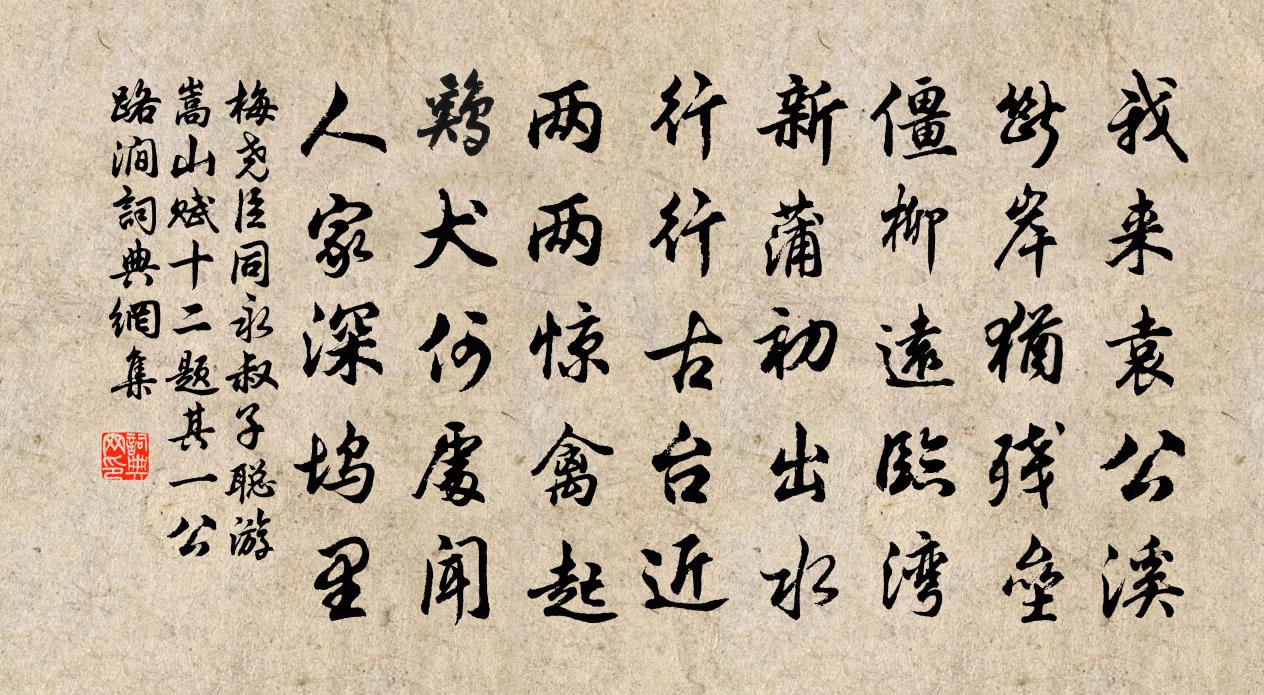 我来袁公溪
断岸猶残垒
僵柳遠臨湾
新蒲初出水
行行古台近
两两惊禽起
鷄犬何處闻
人家深坞里
梅尧臣同永叔子聪游
嵩山赋十二题其一公
路涧詞典網集
詞典网印